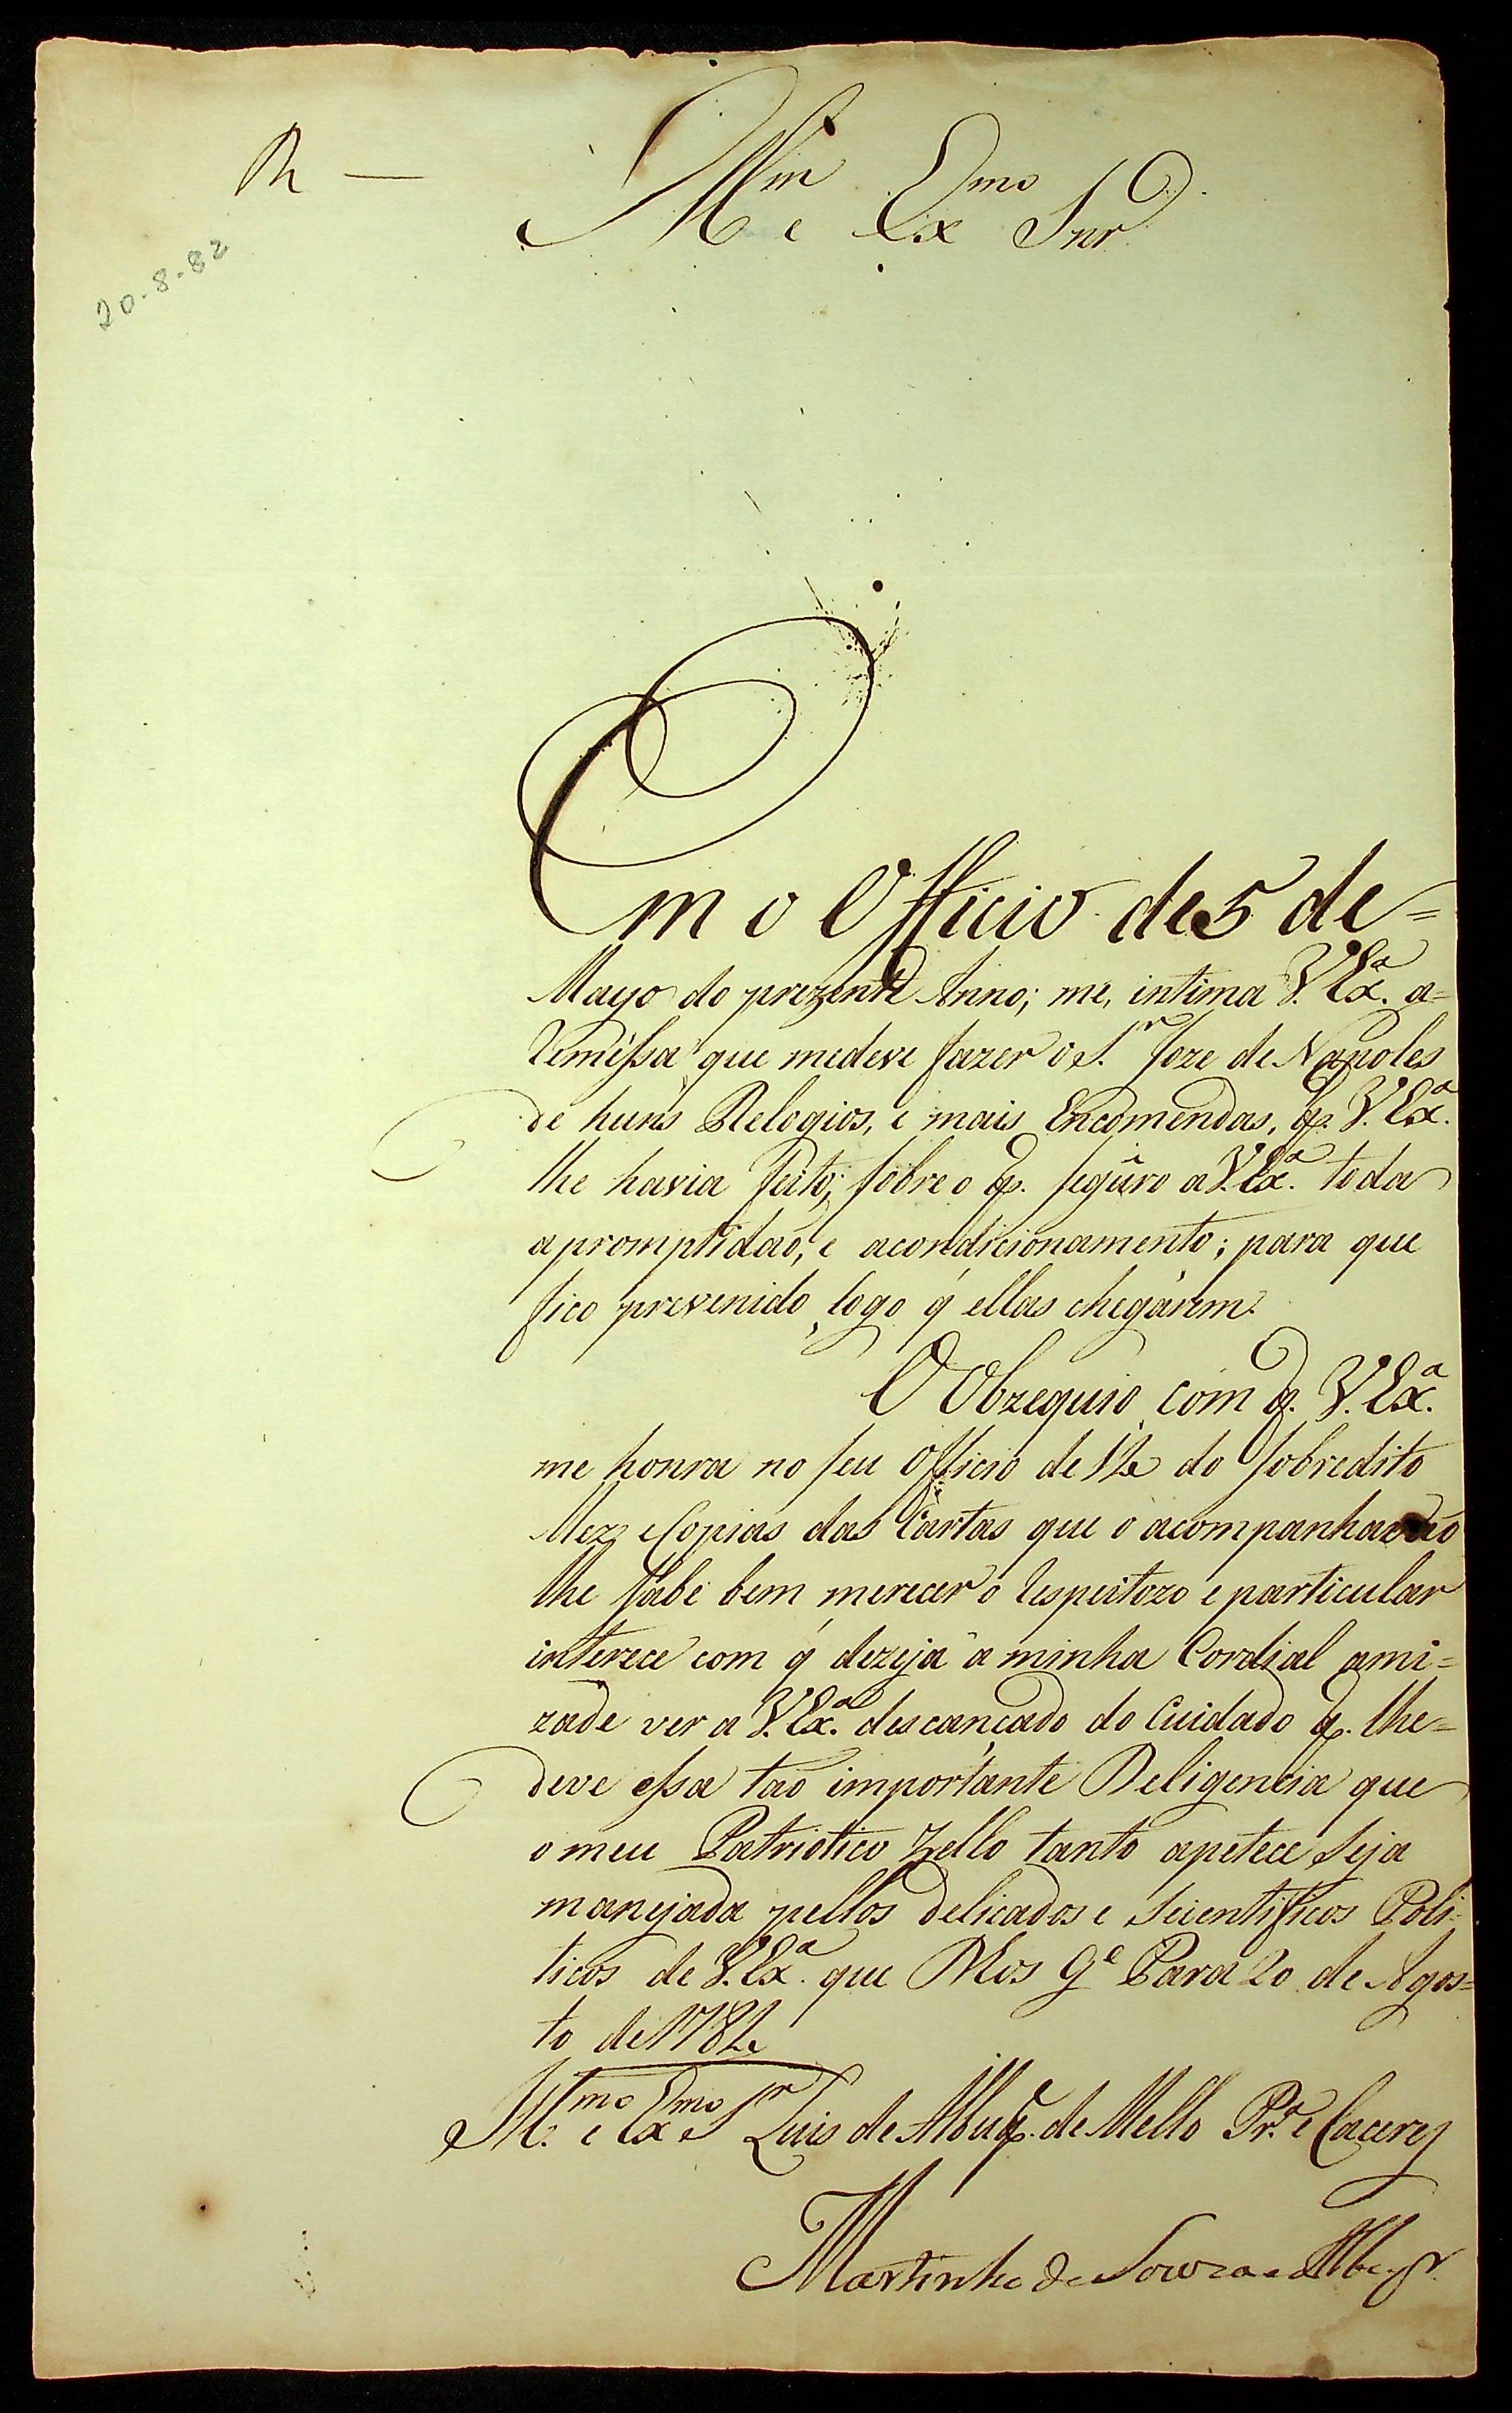 R —
Illmo e Exmo Snr
20-8-82
Em o Officio de 5 de=
Mayo do prezente Anno; me, intima V. Exa. a=
remessa que medeve fazer o S.r Joze de Napoles
de huns Relogios, e mais Encomendas, q. V. Exa.
lhe havia feito; sobre o q. seguro a V. Exa. toda
apromptidaõ, e acondicionamento; para que
fico prevenido logo q̃ ellas chegárem.
O Obzequio com q. V. Exa.
me honra no seu Officio de 12 do sobredito
Mez e Copias das Cartas que o acompanharaõ
lhe sabe bem merecer o respeitozo e particular
interece com q̃ dezeja a minha Cordial ami=
zade ver a V. Exa. descançado do Cuidado q. lhe=
deve essa taõ importante Deligencia que
o meu Patriotico Zello tanto apetece seja
manejada pellos delicados e scientificos Poli=
ticos de V. Exa. que Deos Ge Pará 20 de Agos=
to de 1782
Illmo e Exmo Sr Luis de Albuq. de Mello Pra. e Caceres
Martinho de Souza e Albuqr.